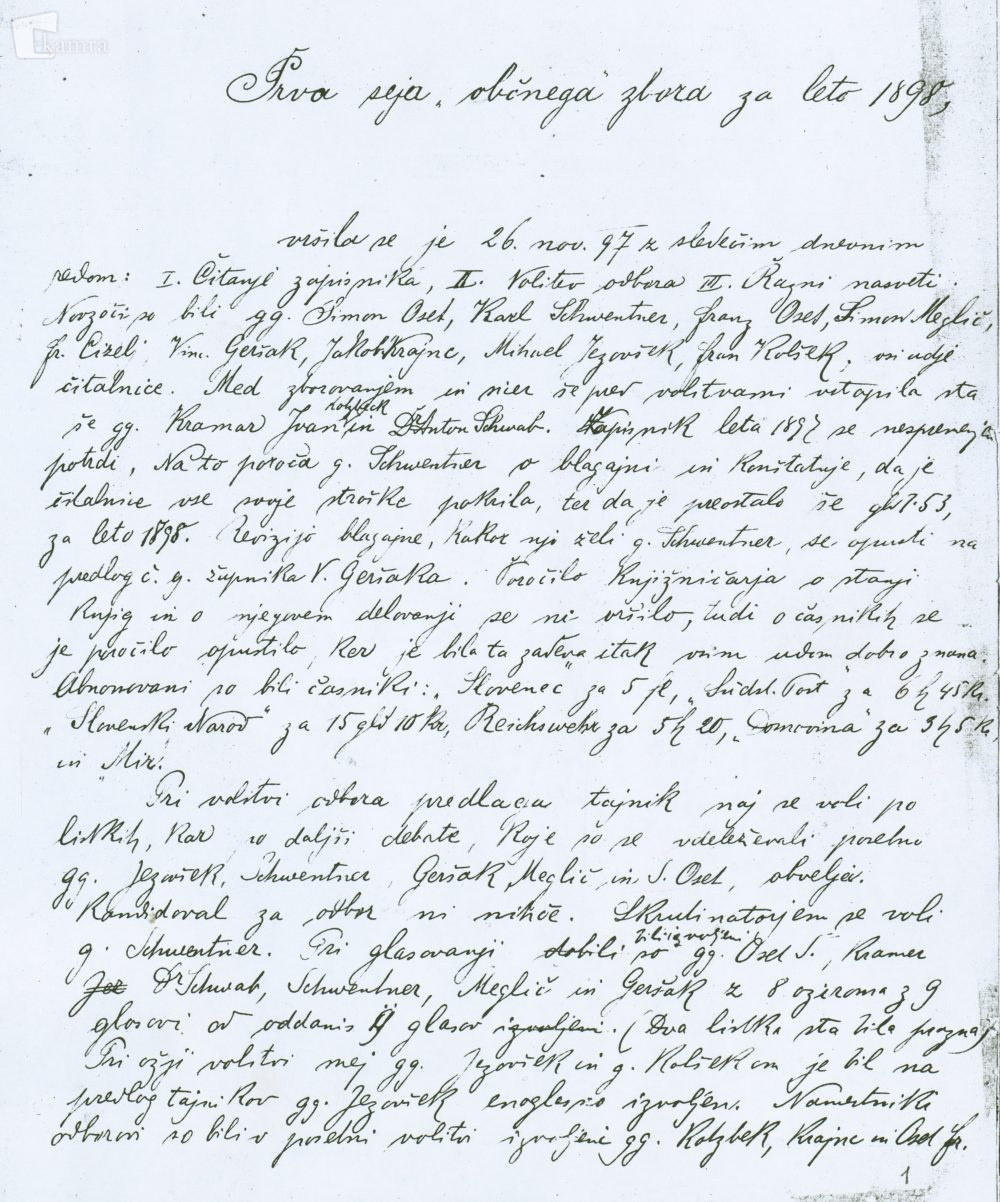 kamra
Prva seja „občnega“ zbora za leto 1898,
vršila se je 26. nov. 97 z sledečim dnevnim
redom: I. Čitanje zapisnika, II. Volitev odbora III. Razni nasveti.
Navzoči so bili gg. Simon Oset, Karl Schwentner, Franz Oset, Simon Meglič,
Fr. Cizelj, Vinc. Geršak, Jakob Krajnc, Mihael Jezovšek, Fran Kolšek, vsi udje
čitalnice. Med zborovanjem in sicer še pred volitvami vstopila sta
še gg. Kramar Ivan in Dr Anton Schwab. Zapisnik leta 1897 se
potrdi, Na to poroča g. Schwentner o blagajni in konštatuje, da je
čitalnice vse svoje stroške pokrila, ter da je preostalo še gld 1·53,
za leto 1898. Revizijo blagajne, kakor nji želi g. Schwentner, se opusti na
predlog č. g. župnika V. Geršaka. Poročilo knjižničarja o stanji
knjig in o njegovem delovanji se ni vršilo, tudi o časnikih se
je poročilo opustilo, ker je bila ta zadeva itak vsim udom dobro znana.
Abnonovani so bili časniki: „Slovenec“ za 5 fl, „Südst. Post“ za 6 fl 45 kr.
„Slovenski Narod“ za 15 gld 10 kr, Reichswehr za 5 fl 20, „Domovina“ za 3 fl 5 k,
in „Mir“.
Pri volitvi odbora predlaga tajnik naj se voli po
listkih, kar po daljši debate, koje so se vdeleževali posebno
gg. Jezovšek, Schwentner, Geršak, Meglič in S. Oset, obvelja.
Kandidoval za odbor ni nihče. Skrutinatorjem se voli
g. Schwentner. Pri glasovanji dobili so bili izvoljeni gg. Oset S., Kramer
Jez Dr Schwab, Schwentner, Meglič in Geršak z 8 oziroma z 9
glasovi od oddanis glasov izvoljeni. (Dva listka sta bila prazna)
Pri ožji volitvi mej gg. Jezovšek in g. Kolšekom je bil na
predlog tajnikov gg. Jezovšek enoglasno izvoljen. Namestniki
odborovi so bili v posebni volitvi izvoljeni gg. Kotzbek, Krajnc in Oset Fr.
1